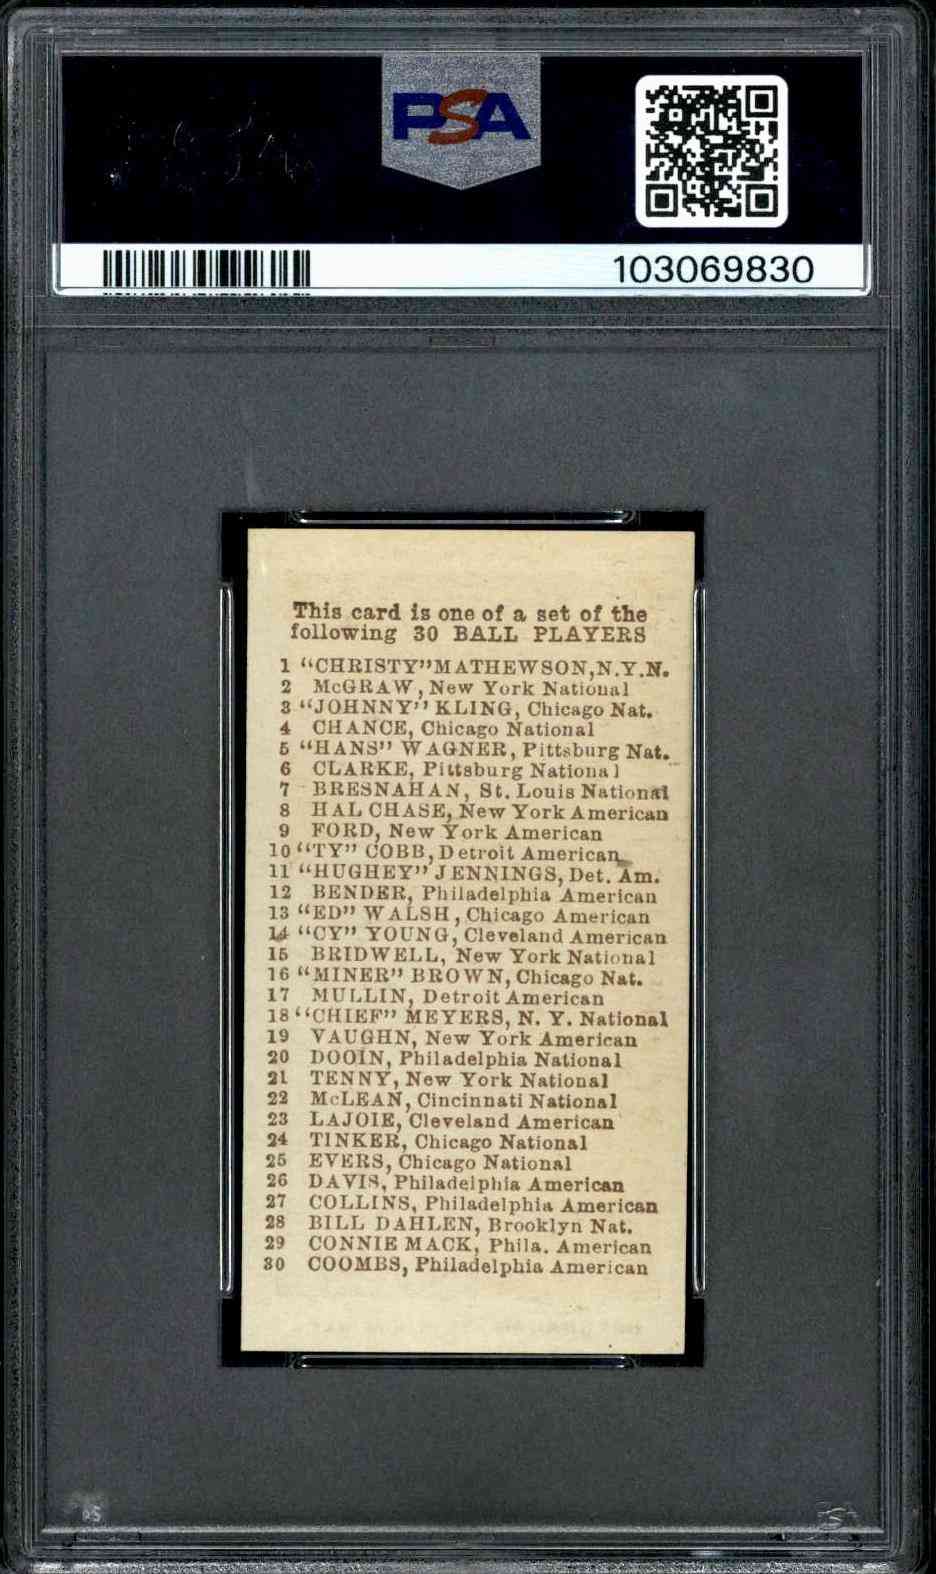 PSA
103069830
This card is one of a set of the
following 30 BALL PLAYERS
1 "CHRISTY" MATHEWSON, N.Y.N.
2 McGRAW, New York National
3 "JOHNNY" KLING, Chicago Nat.
4 CHANCE, Chicago National
5 "HANS" WAGNER, Pittsburg Nat.
6 CLARKE, Pittsburg National
7 BRESNAHAN, St. Louis National
8 HAL CHASE, New York American
9 FORD, New York American
10 "TY" COBB, Detroit American
11 "HUGHEY" JENNINGS, Det. Am.
12 BENDER, Philadelphia American
13 "ED" WALSH, Chicago American
14 "CY" YOUNG, Cleveland American
15 BRIDWELL, New York National
16 "MINER" BROWN, Chicago Nat.
17 MULLIN, Detroit American
18 "CHIEF" MEYERS, N. Y. National
19 VAUGHN, New York American
20 DOOIN, Philadelphia National
21 TENNY, New York National
22 McLEAN, Cincinnati National
23 LAJOIE, Cleveland American
24 TINKER, Chicago National
25 EVERS, Chicago National
26 DAVIS, Philadelphia American
27 COLLINS, Philadelphia American
28 BILL DAHLEN, Brooklyn Nat.
29 CONNIE MACK, Phila. American
30 COOMBS, Philadelphia American